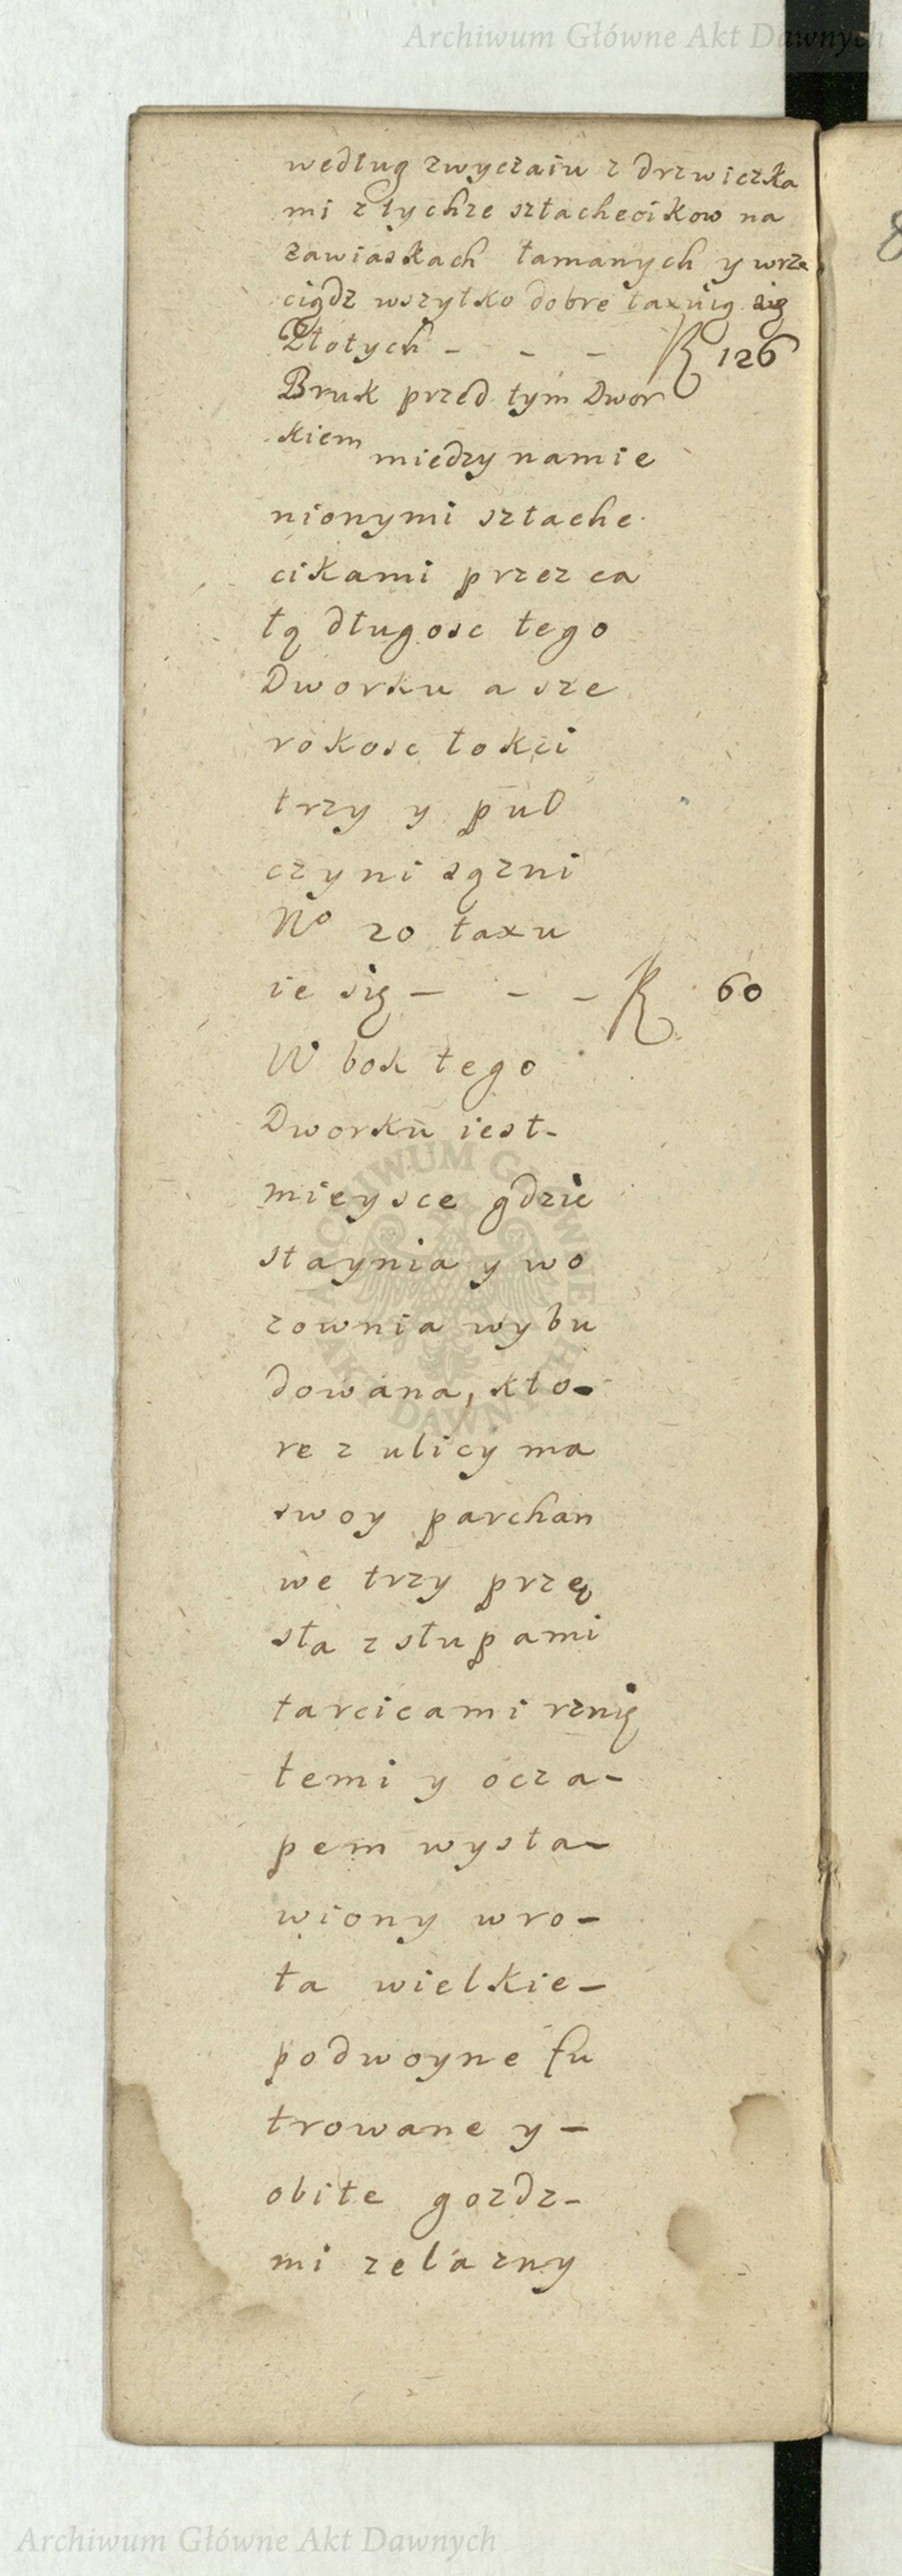 Archiwum Główne Akt Dawnych
według zwyczaiu z drzwiczka
mi z tychze sztachecikow na
zawiaskach łamanych y wrze
ciądz wszytko dobre taxuią się
Złotych - - - 126
Bruk przed tym Dwor
kiem
miedzy namie
nionymi sztache
cikami przez ca
łą długosc tego
Dworku a sze
rokosc łokci
trzy y puł
czyni sązni
No 20 taxu
ie się - - - 60
W bok tego
Dworku iest-
mieysce gdzie
staynia y wo
zownia wybu
dowana, kto-
re z ulicy ma
swoy parchan
we trzy przę
sła z słupami
tarcicami rznię
temi y ocza-
pem wysta-
wiony wro-
ta wielkie-
podwoyne fu
trowane y-
obite gozdz-
mi zelazny
ARCHIWUM GŁÓWNE AKT DAWNYCH
Archiwum Główne Akt Dawnych